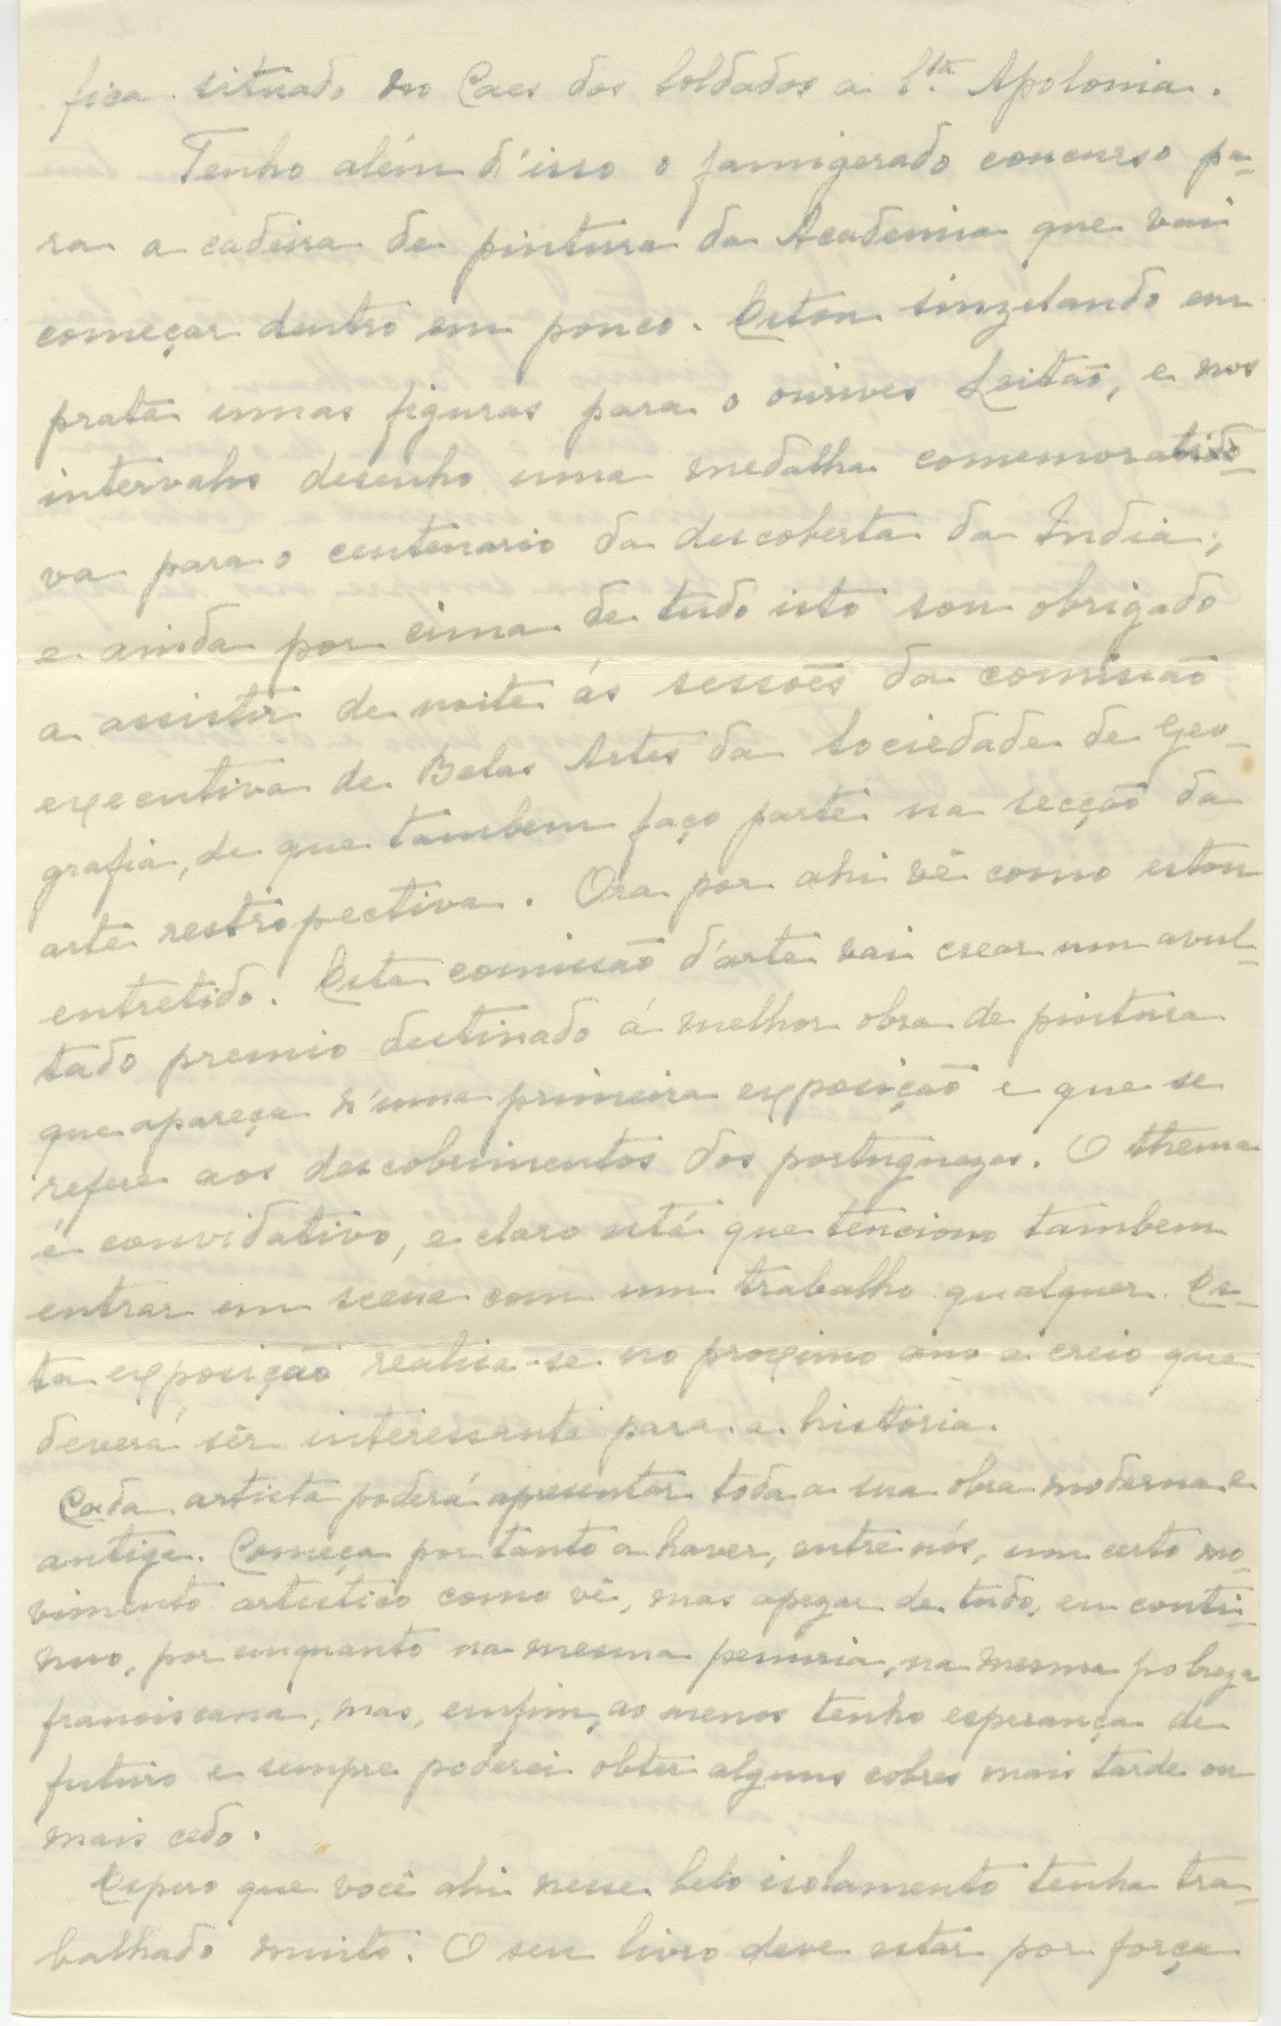 fica situado no Caes dos Soldados a S.ta Apolonia.
Tenho além d'isso o famigerado concurso pa-
ra a cadeira de pintura da Academia que vai
começar dentro em pouco. Estou sinzelando em
prata umas figuras para o ourives Leitão, e nos
intervalos desenho uma medalha comemorati-
va para o centenario da descoberta da India;
e ainda por cima de tudo isto sou obrigado
a assistir de noite ás sessões da comissão
executiva de Belas Artes da Sociedade de Geo-
grafia, de que tambem faço parte na secção da
arte restropectiva. Ora por ahi vê como estou
entretido. Esta comissão d'arte vai crear um avul-
tado premio destinado á melhor obra de pintura
que apareça n'uma primeira exposição e que se
refere aos descobrimentos dos portuguezes. O thema
é convidativo, e claro está que tenciono tambem
entrar em scena com um trabalho qualquer. Es-
ta exposição realisa-se no proximo ano e creio que
deverá sêr interessante para a historia.
Cada artista poderá apresentar toda a sua obra moderna e
antiga. Começa por tanto a haver, entre nós, um certo mo-
vimento artistico como vê, mas apezar de tudo, eu conti-
nuo, por emquanto na mesma penuria, na mesma pobreza
franciscana, mas, emfim, ao menos tenho esperança de
futuro e sempre poderei obter alguns cobres mais tarde ou
mais cedo.
Espero que você ahi nesse belo isolamento tenha tra-
balhado muito. O seu livro deve estar por força